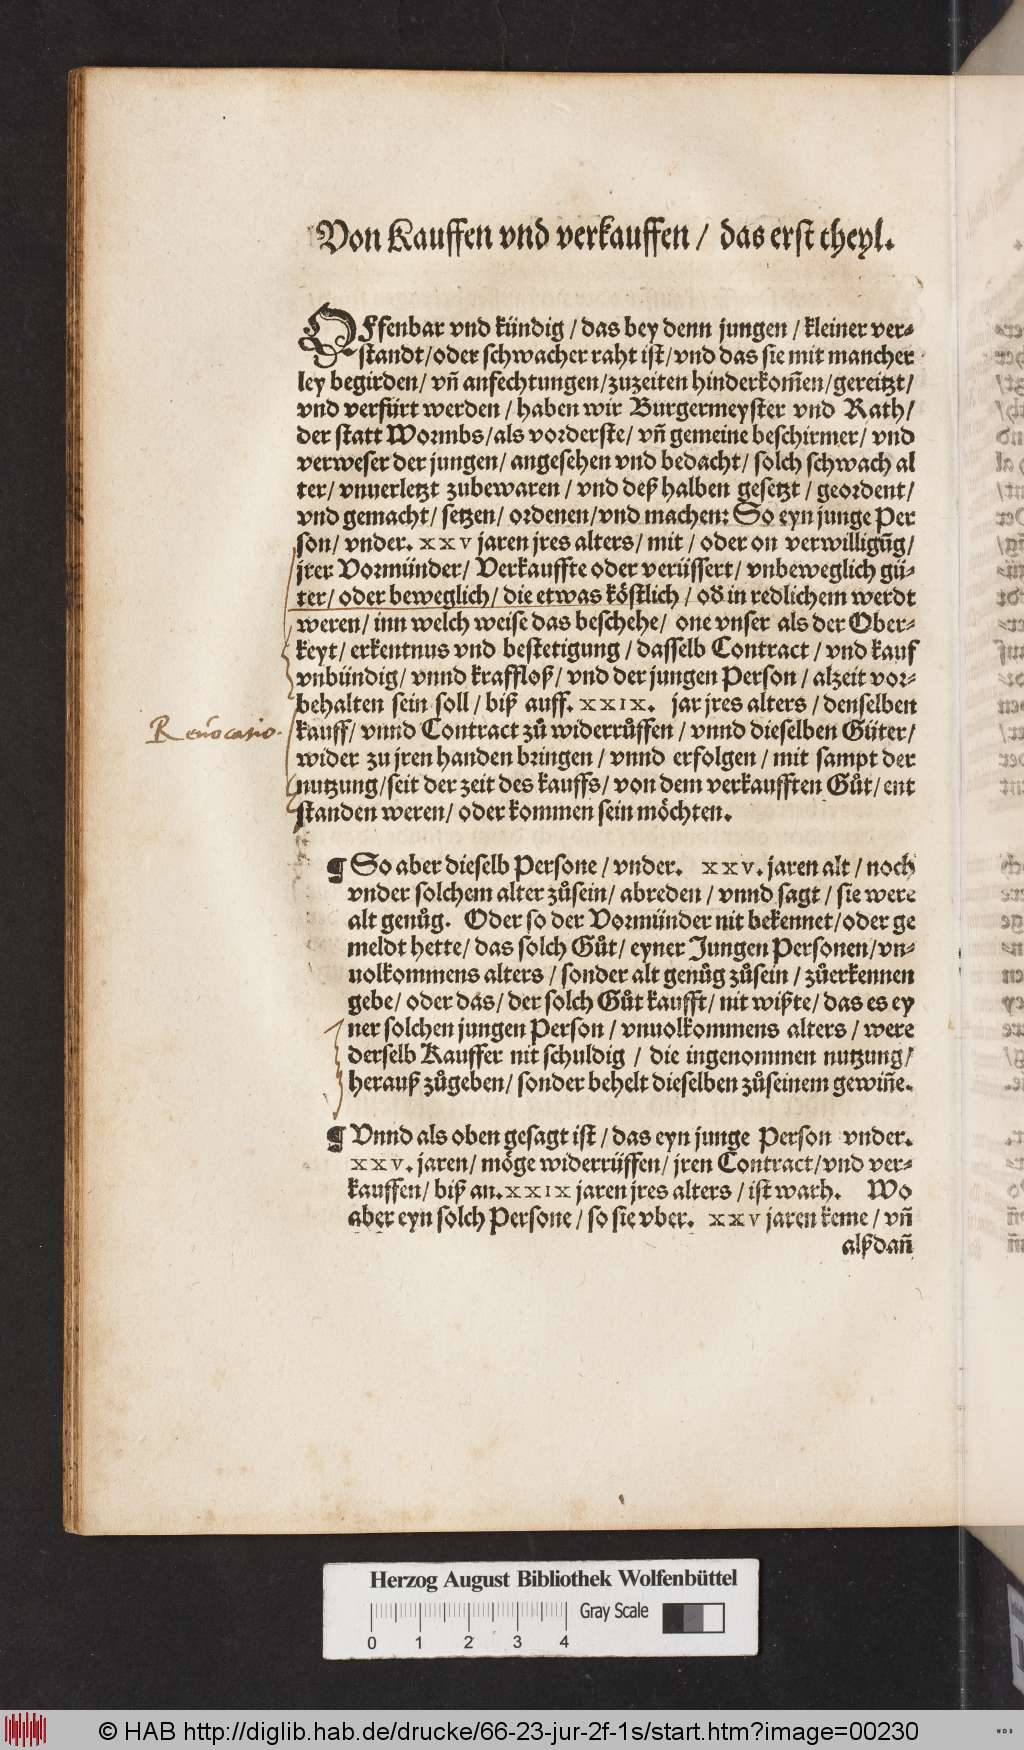 Von Kauffen vnd verkauffen / das erst theyl.
Offenbar vnd kündig / das bey denn jungen / kleiner ver⸗
standt / oder schwacher raht ist / vnd das sie mit mancher
ley begirden / vñ anfechtungen / zuzeiten hinderkom̃en / gereitzt /
vnd verfürt werden / haben wir Burgermeyster vnd Rath /
der statt Wormbs / als vorderste / vñ gemeine beschirmer / vnd
verweser der jungen / angesehen vnd bedacht / solch schwach al
ter / vnuerletzt zubewaren / vnd deß halben gesetzt / geordent /
vnd gemacht / setzen / ordenen / vnd machen: So eyn junge Per
son / vnder. XXV jaren jres alters / mit / oder on verwilligũg /
jrer Vormünder / Verkauffte oder verüssert / vnbeweglich gü⸗
ter / oder beweglich / die etwas köstlich / oď in redlichem werdt
weren / inn welch weise das beschehe / one vnser als der Ober⸗
keyt / erkentnus vnd bestetigung / dasselb Contract / vnd kauf
vnbündig / vnnd krafftloß / vnd der jungen Person / alzeit vor⸗
behalten sein soll / biß auff. XXIX. jar jres alters / denselben
kauff / vnnd Contract zů widerrůffen / vnnd dieselben Güter /
wider zu jren handen bringen / vnnd erfolgen / mit sampt der
nutzung / seit der zeit des kauffs / von dem verkaufften Gůt / ent
standen weren / oder kommen sein möchten.
Reuocatio.
¶ So aber dieselb Persone / vnder. XXV. jaren alt / noch
vnder solchem alter zůsein / abreden / vnnd sagt / sie were
alt genůg. Oder so der Vormünder nit bekennet / oder ge
meldt hette / das solch Gůt / eyner Jungen Personen / vn⸗
uolkommens alters / sonder alt genůg zůsein / zůerkennen
gebe / oder das / der solch Gůt kaufft / nit wißte / das es ey
ner solchen jungen Person / vnuolkommens alters / were
derselb Kauffer nit schuldig / die ingenommen nutzung /
herauß zůgeben / sonder behelt dieselben zůseinem gewiñe.
¶ Vnnd als oben gesagt ist / das eyn junge Person vnder.
XXV. jaren / möge widerrüffen / jren Contract / vnd ver⸗
kauffen / biß an. XXIX jaren jres alters / ist warh. Wo
aber eyn solch Persone / so sie vber. XXV jaren keme / vñ
alßdañ
Herzog August Bibliothek Wolfenbüttel
Gray Scale
0 1 2 3 4
© HAB http://diglib.hab.de/drucke/66-23-jur-2f-1s/start.htm?image=00230